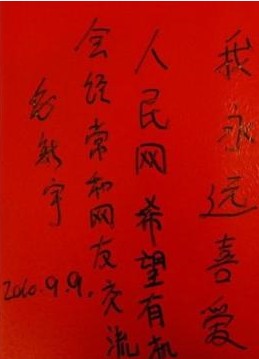 我永远喜爱
人民网希望有机
会经常和网友交流
彭新宇
2010.9.9.